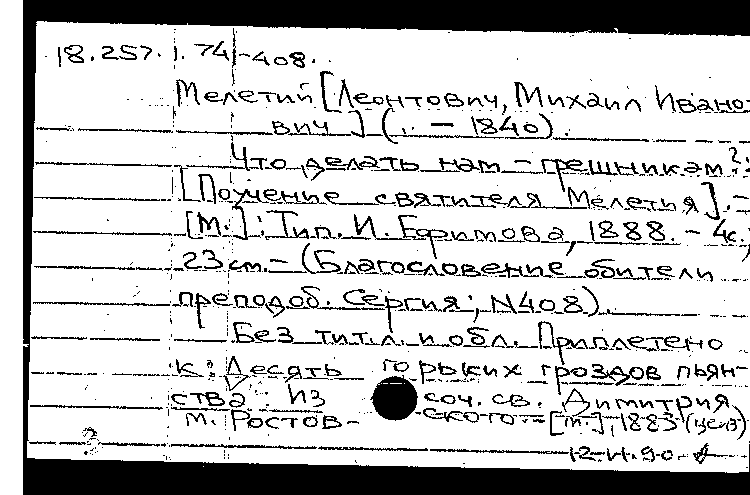 18.257.1.74-408.
Мелетий [Леонтович, Михаил Ивано-
вич] (.. - 1840).
Что делать нам - грешникам?:
[Поучение святителя Мелетия]. -
[М.]: Тип. И. Ефимова, 1888. - 4с.;
23см. - (Благословение обители
преподоб. Сергия; N408).
Без тит.л. и обл. Приплетено
к: Десять горьких гроздов пьян-
ства: Из соч. св. Димитрия,
м. Ростов-ского. - [М.], 1883 (ценз)
3